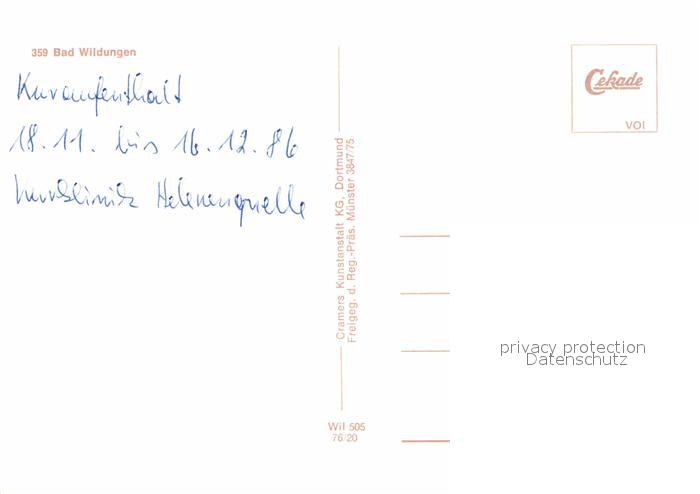 359 Bad Wildungen
Kuraufenthalt
18.11. bis 16.12.86
Kurklinik Helenenquelle
Cramers Kunstanstalt KG, Dortmund
Freigeg. d. Reg.-Präs. Münster 3847/75
Wil 505
76/20
Cekade
VOI
privacy protection
Datenschutz